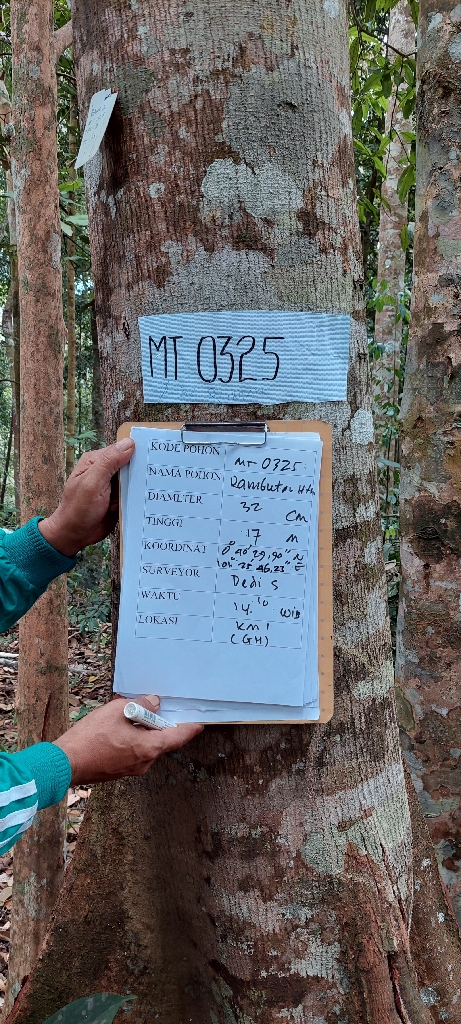 MT 0325
KODE POHON MT 0325
NAMA POHON Rambutan Htn
DIAMETER 32 cm
TINGGI 17 M
KOORDINAT 0° 40' 29,90" N
101° 25' 46,23" E
SURVEYOR Dedi S
WAKTU 14.10 WIB
LOKASI KM 1
(GH)